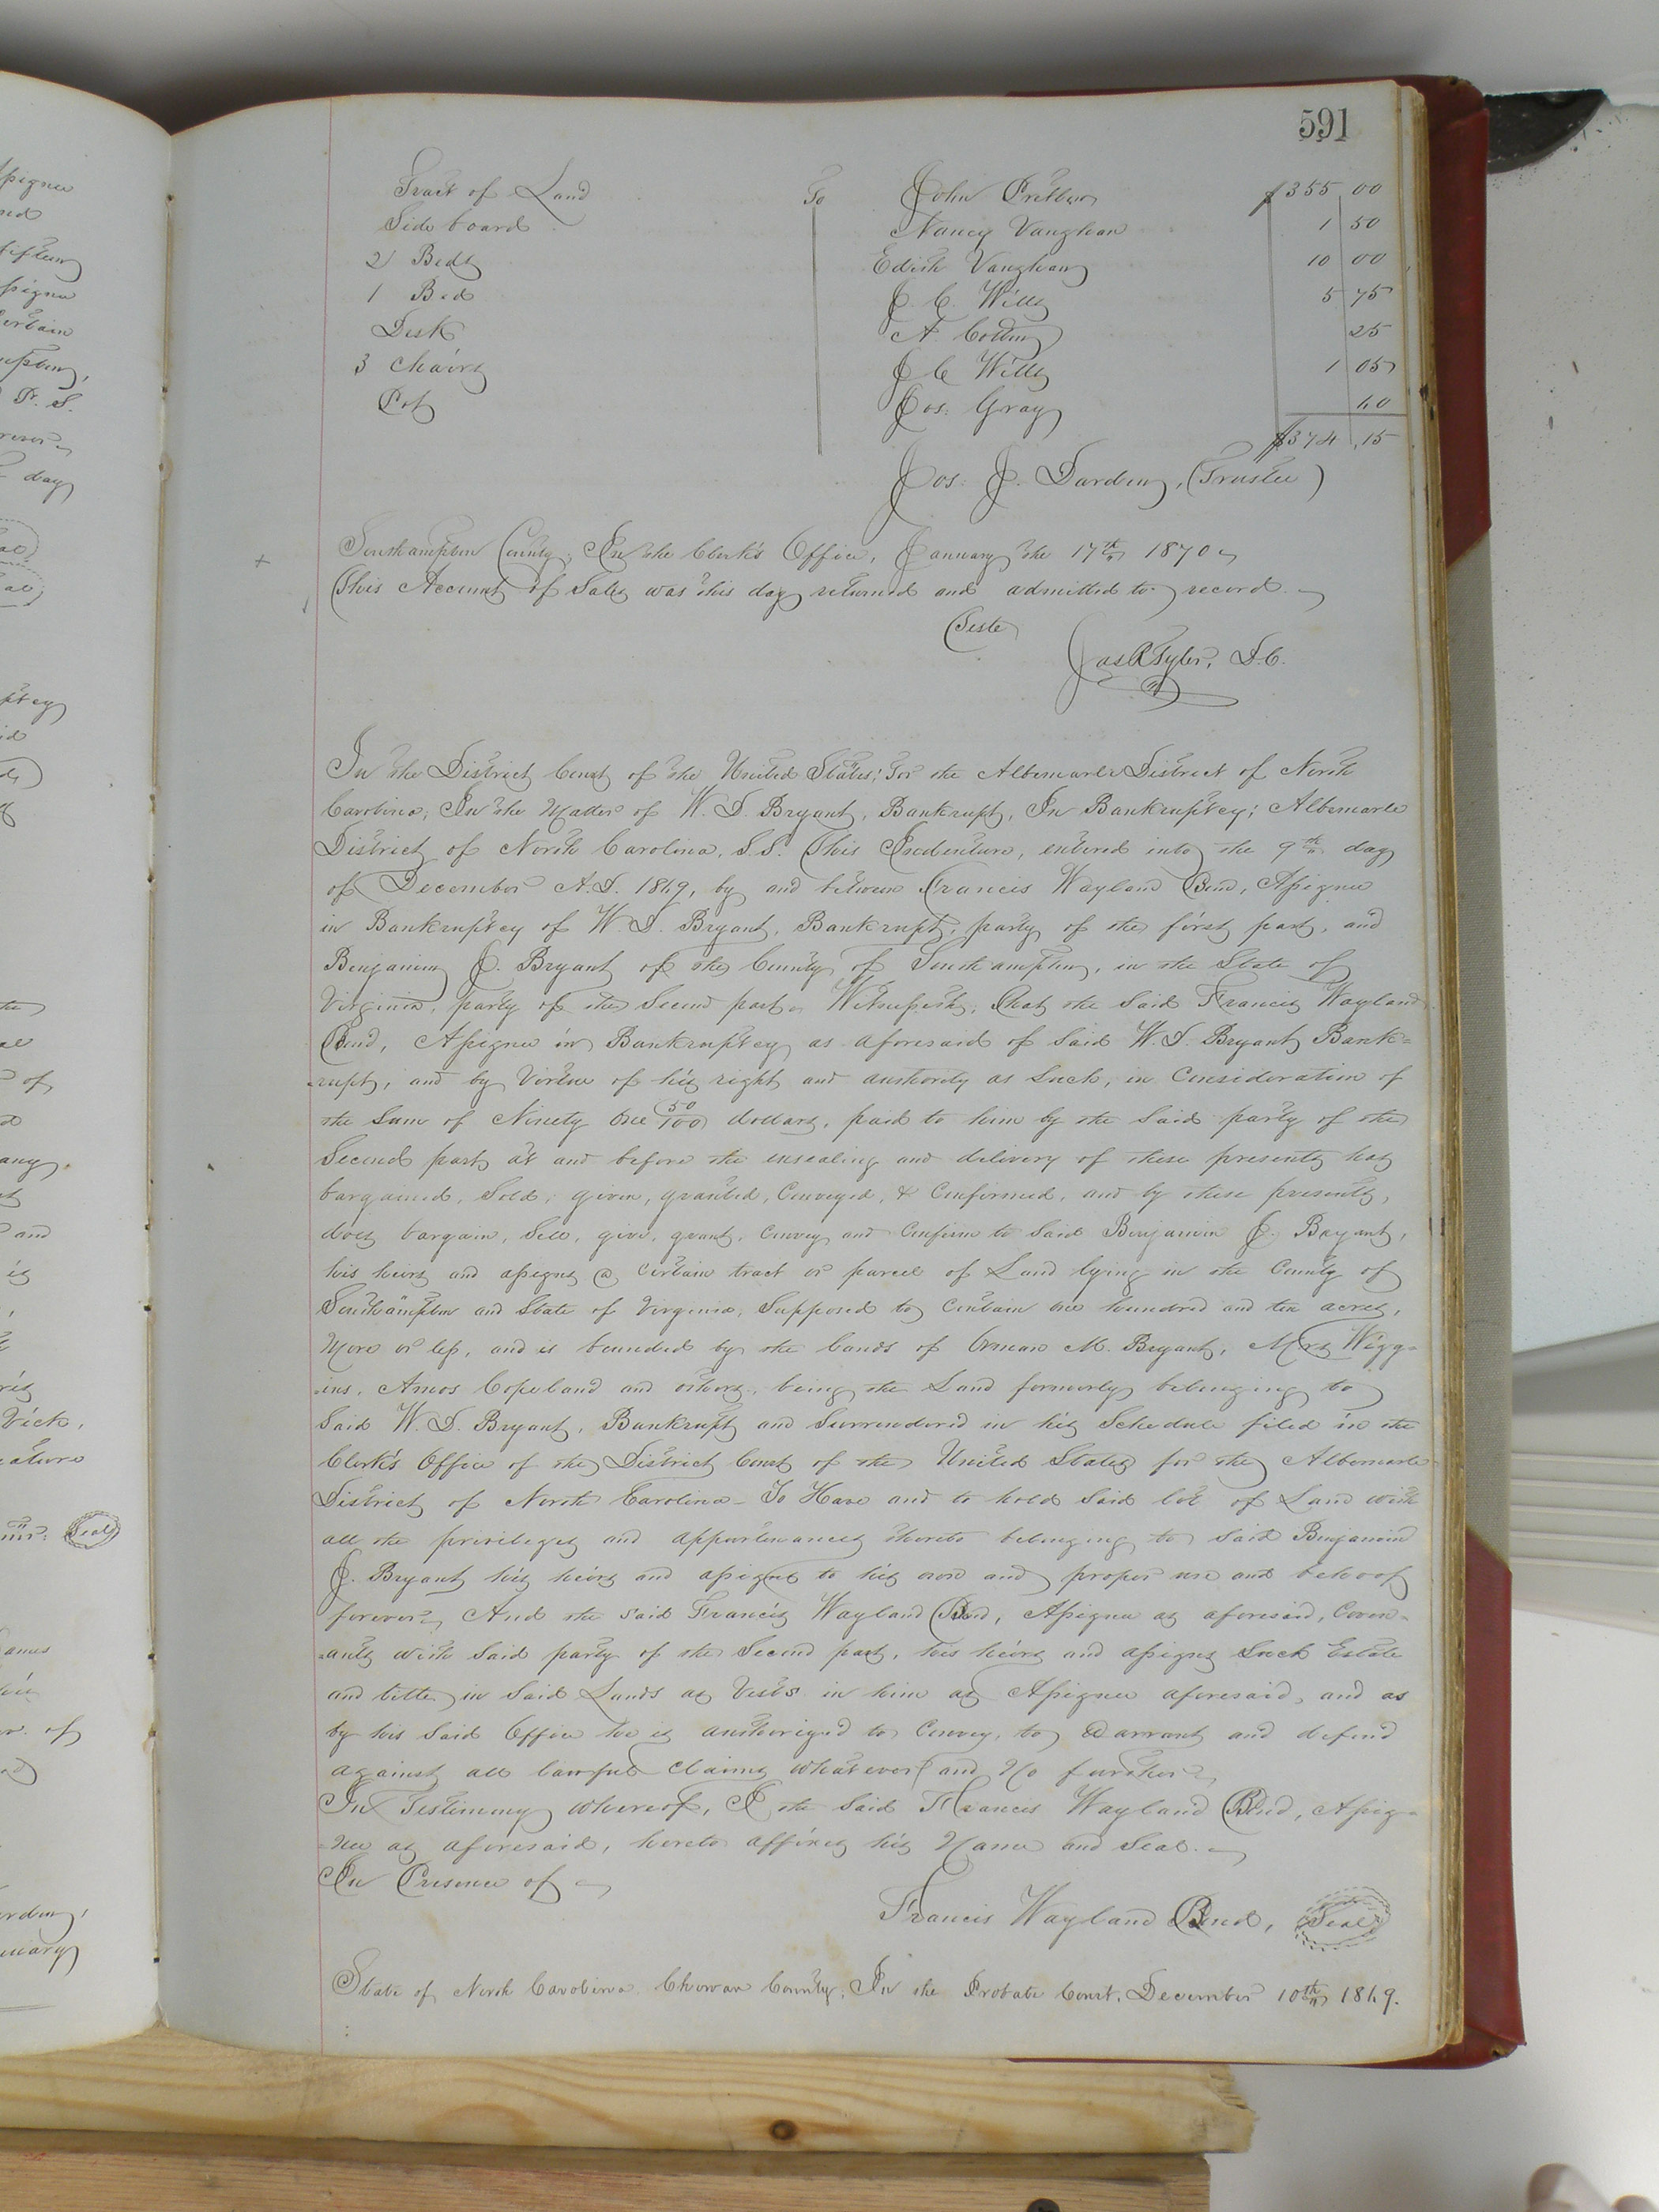 591
Tract of Land To John Pretlow $355 00
Side board Nancy Vaughan 1 50
2 Beds Edith Vaughan 10 00
1 Bed J. C. Wills 5 75
Desk A. 25
3 Chairs J C Wills 1 05
Pot Jos. Gray 60
$374 .15
Jos. J. Darden, (Trustee)
Southampton County; In the Clerk's Office, January the 17th 1870
This Account of Sales was this day returned and admitted to record.
Teste
Jas R Tyler, D.C.
In the District Court of the United States; For the Albemarle District of North
Carolina; In the Matter of W. D. Bryant, Bankrupt, In Bankruptcy; Albemarle
District of North Carolina, S.S. This Indenture, entered into the 9th day
of December A.D. 1869, by and between Francis Wayland Bend, Assignee
in Bankruptcy of W. D. Bryant, Bankrupt, party of the first part, and
Benjamin J. Bryant of the County of Southampton, in the State of
Virginia, party of the Second part. Witnesseth; That the Said Francis Wayland
Bend, Assignee in Bankruptcy as aforesaid of Said W. D. Bryant Bank=
=rupt, and by Virtue of his right and authority as Such, in Consideration of
the Sum of Ninety One 50/100 dollars, paid to him by the Said party of the
Second part at and before the ensealing and delivery of these presents has
bargained, Sold, given, granted, Conveyed, & Confirmed, and by these presents,
does bargain, Sell, give, grant, Convey and Confirm to Said Benjamin J. Bryant,
his heirs and assigns a certain tract or parcel of Land lying in the County of
Southampton and State of Virginia, Supposed to Contain one hundred and ten acres,
More or less, and is bounded by the Lands of Orman M. Bryant, Mrs Wigg=
=ins, Amos Copeland and others, being the Land formerly belonging to
Said W. D. Bryant, Bankrupt and Surrendered in his Schedule filed in the
Clerk's Office of the District Court of the United States for the Albemarle
District of North Carolina - To Have and to hold Said lot of Land with
all the privileges and appurtenances thereto belonging to Said Benjamin
J. Bryant his heirs and assigns to his own and proper use and behoof
forever, And the said Francis Wayland Bend, Assignee as aforesaid, Coven=
=ants with Said party of the Second part, his heirs and assigns Such Estate
and title in Said Lands as Vests in him as Assignee aforesaid, and as
by his Said Office he is authorized to Convey, to Warrant and defend
against all lawful Claims whatever and No further
In Testimony whereof, I the Said Francis Wayland Bend, Assig=
=nee as aforesaid, hereto affixes his Name and Seal.
In Presence of
Francis Wayland Bend, Seal
State of North Carolina Chowan County; In the Probate Court, December 10th 1869.